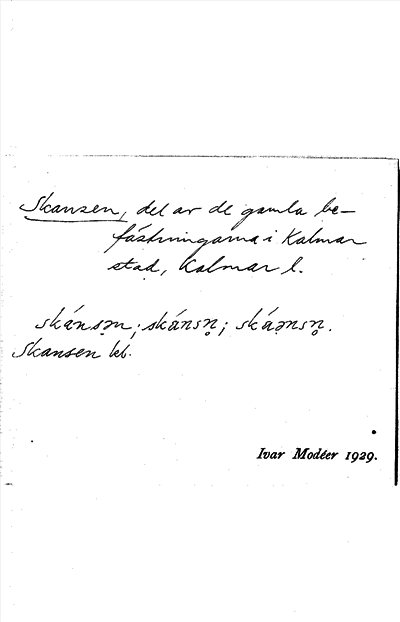 Skansen, del av de gamla be-
fästningarna i Kalmar
stad, Kalmar l.
skánsə̣n; skánsn̥; skáənsn̥.
Skansen kl.
Ivar Modéer 1929.